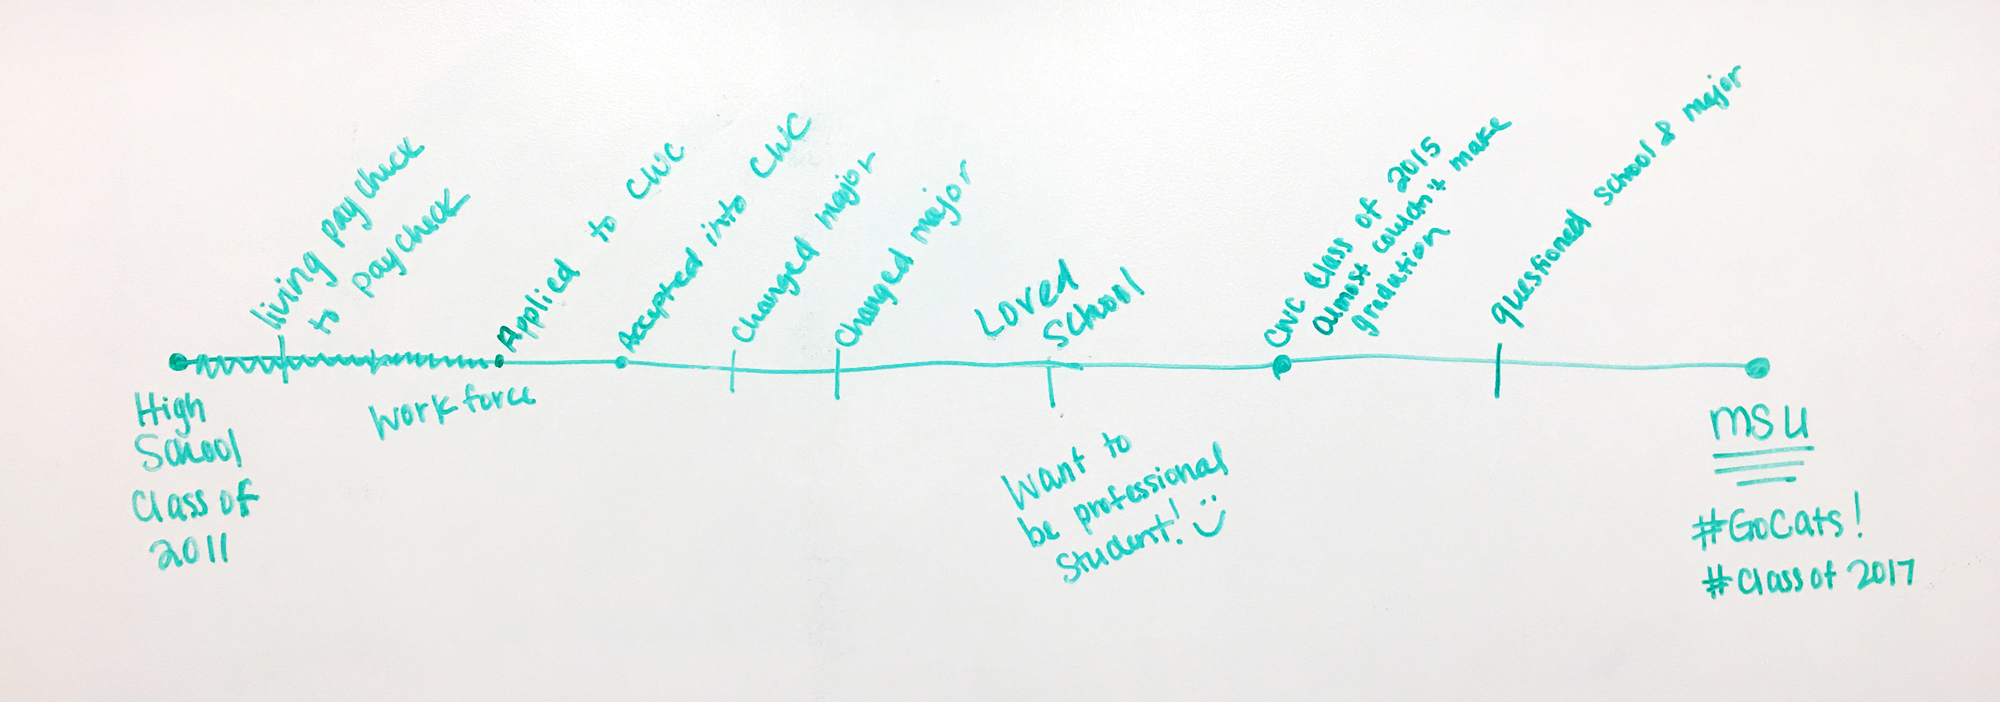 living paycheck
to paycheck
Applied to CWC
Accepted into CWC
Changed major
Changed major
Loved
School
CWC Class of 2015
almost couldn't make
gradation
questioned school & major
High
School
Class of
2011
Workforce
Want to
be professional
student! :)
MSU
#GoCats!
#Classof 2017